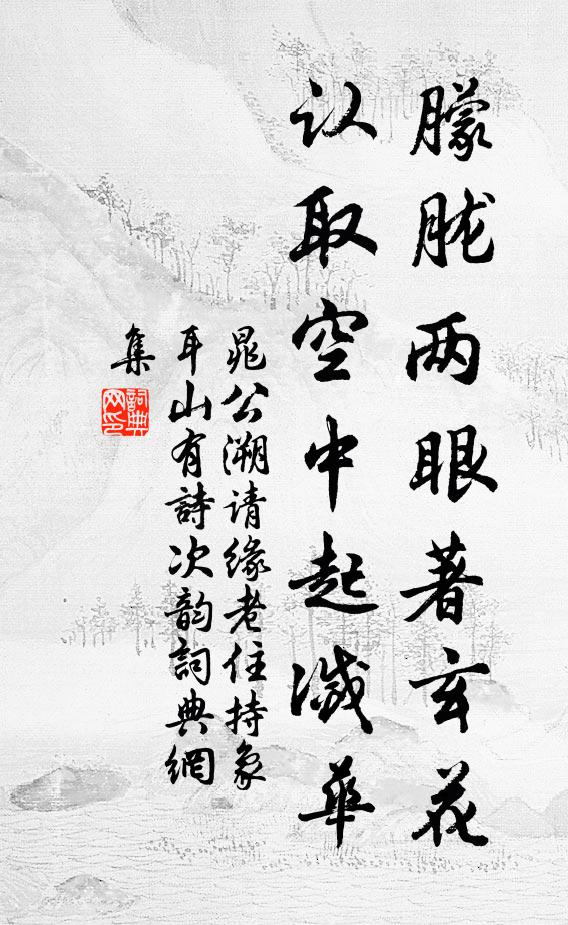 朦胧两眼著玄花
认取空中起灭华
晁公溯请缘老住持象
耳山有詩次韵詞典網
集
詞典网印